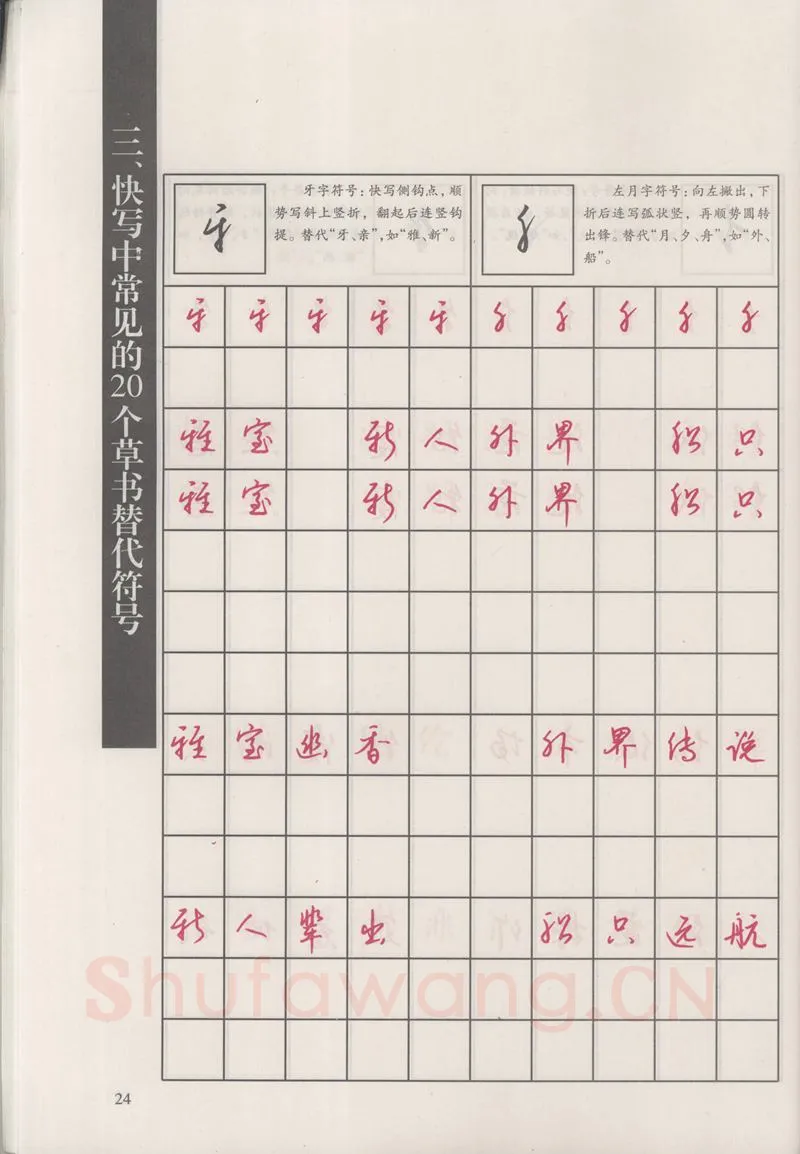 三、快写中常见的20个草书替代符号
牙字符号：快写侧钩点，顺
势写斜上竖折，翻起后连竖钩
提。替代“牙、亲”，如“雅、新”。
左月字符号：向左撇出，下
折后连写弧状竖，再顺势圆转
出锋。替代“月、夕、舟”，如“外、
船”。
雅室 新人外界 船只
雅室 新人外界 船只
雅室幽香 外界传说
新人辈出 船只远航
Shufawang.CN
24